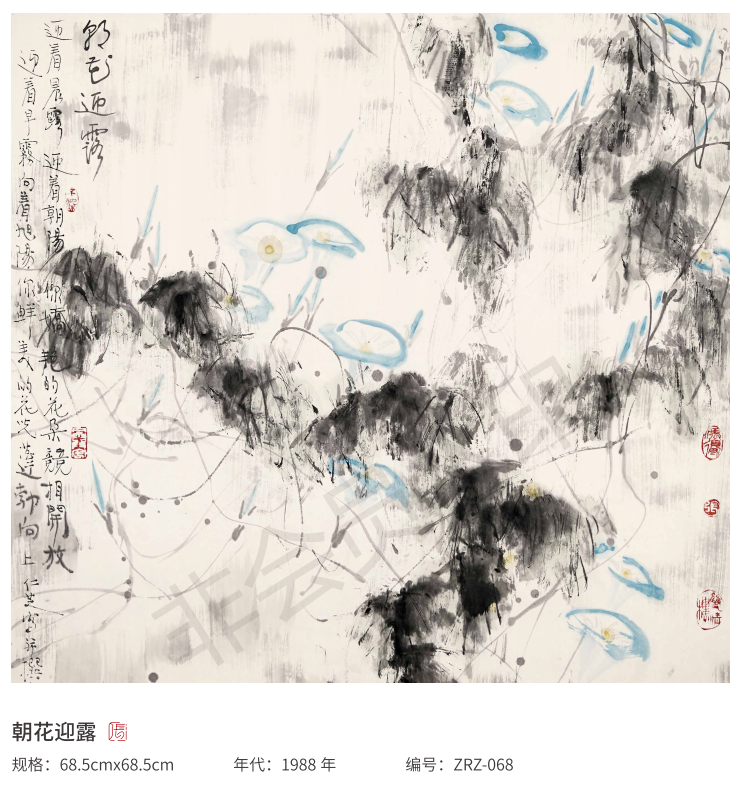 朝花迎露
迎着晨露 迎着朝陽 你嬌艳的花朵競相開放
迎着早霧 向着旭陽 你鮮美的花蓬勃向上
非会员
朝花迎露
规格：68.5cmx68.5cm 年代：1988 年 编号：ZRZ-068